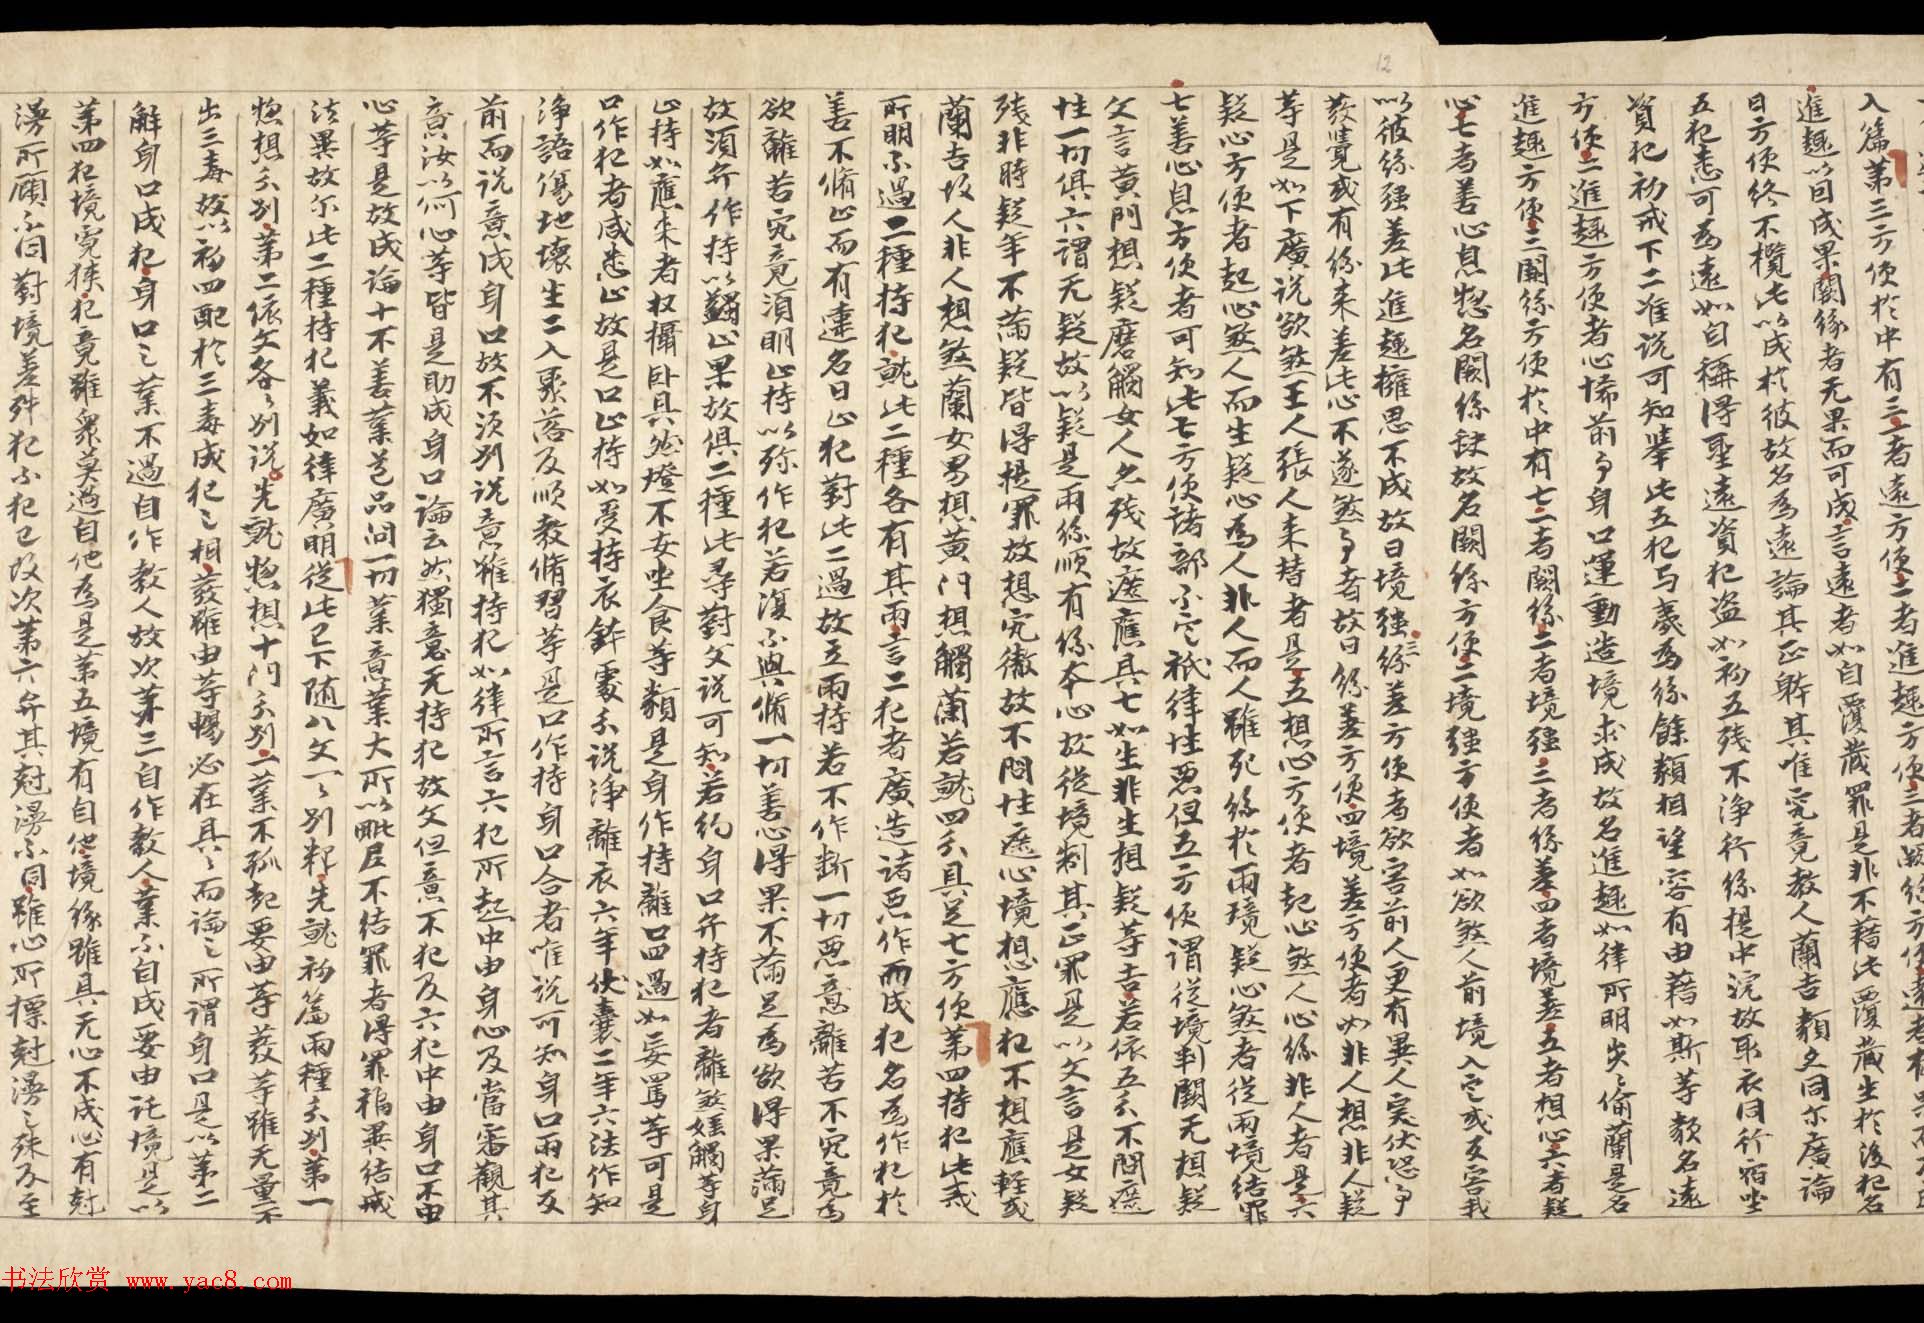 入篇第三方便於中有三一者遠方便二者進趣方便三者闕緣方便遠者
進趣以因成果闕緣者无果而可成言遠者如自覆藏罪是非不藉此覆藏生於後犯名
曰方便終不攬此以成於彼故名為遠論其正躰其唯究竟教人蘭吉類文同尓廣論
五犯恚可為遠如自稱得聖遠資犯盜如初五殘不淨行緣提中浣故取衣同行宿坐
資犯初戒下二准說可知舉此五犯与義為緣餘類相望容有由藉如斯等類名遠
方便二進趣方便者心悕前事身口運動造境求成故名進趣如律所明炎〻偷蘭是名
進趣方便三闕緣方便於中有七一者闕緣二者境強三者緣差四者境差五者想心六者疑
心七者善心息惣名闕緣缺故名闕緣方便二境強方便者如欲煞人前境入定或反害我
以彼緣強差此進趣擁思不成故曰境強三緣差方便者欲害前人更有異人災伏恐事
發覺或有緣來差此心不遂煞事者故曰緣差方便四境差方便者如非人想非人疑
等是如下廣說欲煞王人張人來替者是五想心方便者起心煞人心緣非人者是六
疑心方便者起心煞人而生疑心為人非人而人雖死緣於兩境疑心煞者從兩境結罪
七善心息方便者可知此七方便諸部不定祇律性惡但五方便謂從境判闕无想疑
文言黃門想疑磨觸女人亦殘故遮應具七如生非生想疑等吉若依五分不問遮
性一切俱六謂无疑故以疑是兩緣順有緣本心故從境制其正罪是以文言是女疑
殘非時疑羊不滿疑皆得提罪故想究徹故不問性遮心境想應犯不想應輕或
蘭吉故人非人想煞蘭女男想黃門想觸蘭若就四分具足七方便第四持犯此戒
所明不過二種持犯就此二種各有其兩言二犯者廣造諸惡作而成犯名為作犯於
善不脩止而有違名曰止犯對此二過故立兩持若不作斷一切惡意離苦不究竟為
欲離苦究竟須明止持以弥作犯若復不興脩一切善心得果不滿足為欲得果滿足
故須弁作持以蠲止果故俱二種此尋對父說可知若約身口弁持犯者離煞婬觸等身
止持如應來者权攝卧具然燈不女坐食等類是身作持離口四過如妄罵等可是
口作犯者咸恚止故是口止持如受持衣鉢處分說淨離衣六年伏囊二年六法作知
淨語傷地壞生二入聚落及順教脩習等是口作持身口合者唯說可知身口兩犯及
前而說意成身口故不須別說意雖持犯如律所言六犯所起中由身心及當審觀其
意汝以何心等皆是助成身口論云然獨意无持犯故文但意不犯及六犯中由身口不由
心等是故成論十不善業道品問一切業意業大所以毗尼不結罪者得罪福異結戒
法異故尓此二種持犯義如律廣明從此已下隨八文一〻別釋先就初篇兩種分別第一
惣想分別第二依文各〻別說先就惣想十門分別一業不孤起要由等發等雖无量不
出三毒故以初四配於三毒成犯之相發雖由等暢必在具〻而論之所謂身口是以第二
解身口成犯身口之業不過自作教人故次第三自作教人業不自成要由託境是以
第四犯境寬狹犯竟雖衆莫過自他為是第五境有自他境緣雖具无心不成心有尅
漫所願不同對境差殊犯不犯已故次第六弁其尅漫不同雖心所標尅漫之殊及至
12
三
书法欣赏 www.yac8.com